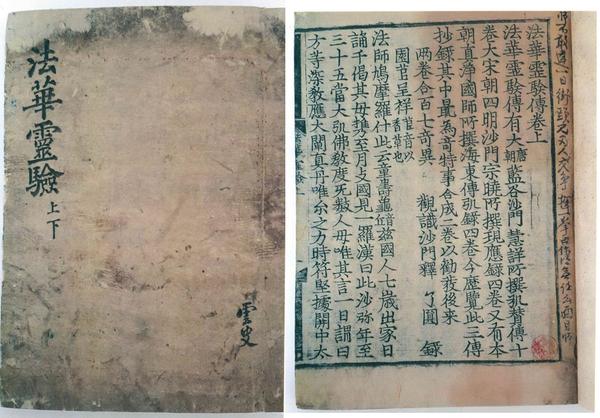 法華靈驗
上下
雲史
法華靈驗傳卷上
法華靈驗傳有大唐朝藍谷沙門慧詳所撰弘賛傳十
卷大宋朝四明沙門宗曉所撰現應録四卷又有本
朝真淨國師所撰海東傳弘録四卷今歷覽此三傳
抄録其中最為奇特事合成二卷以勸我後來
兩卷合百七奇異 觀識沙門釋 了圓 録
呈祥 香草也
法師鳩摩羅什此云童壽龜茲國人七歲出家日
誦千偈其母携至月支國見一羅漢曰此沙弥年至
三十五當大弘佛教度死数人母唯其言一日謂曰
方等深教應大闡真丹唯尒之力時符堅據關中太